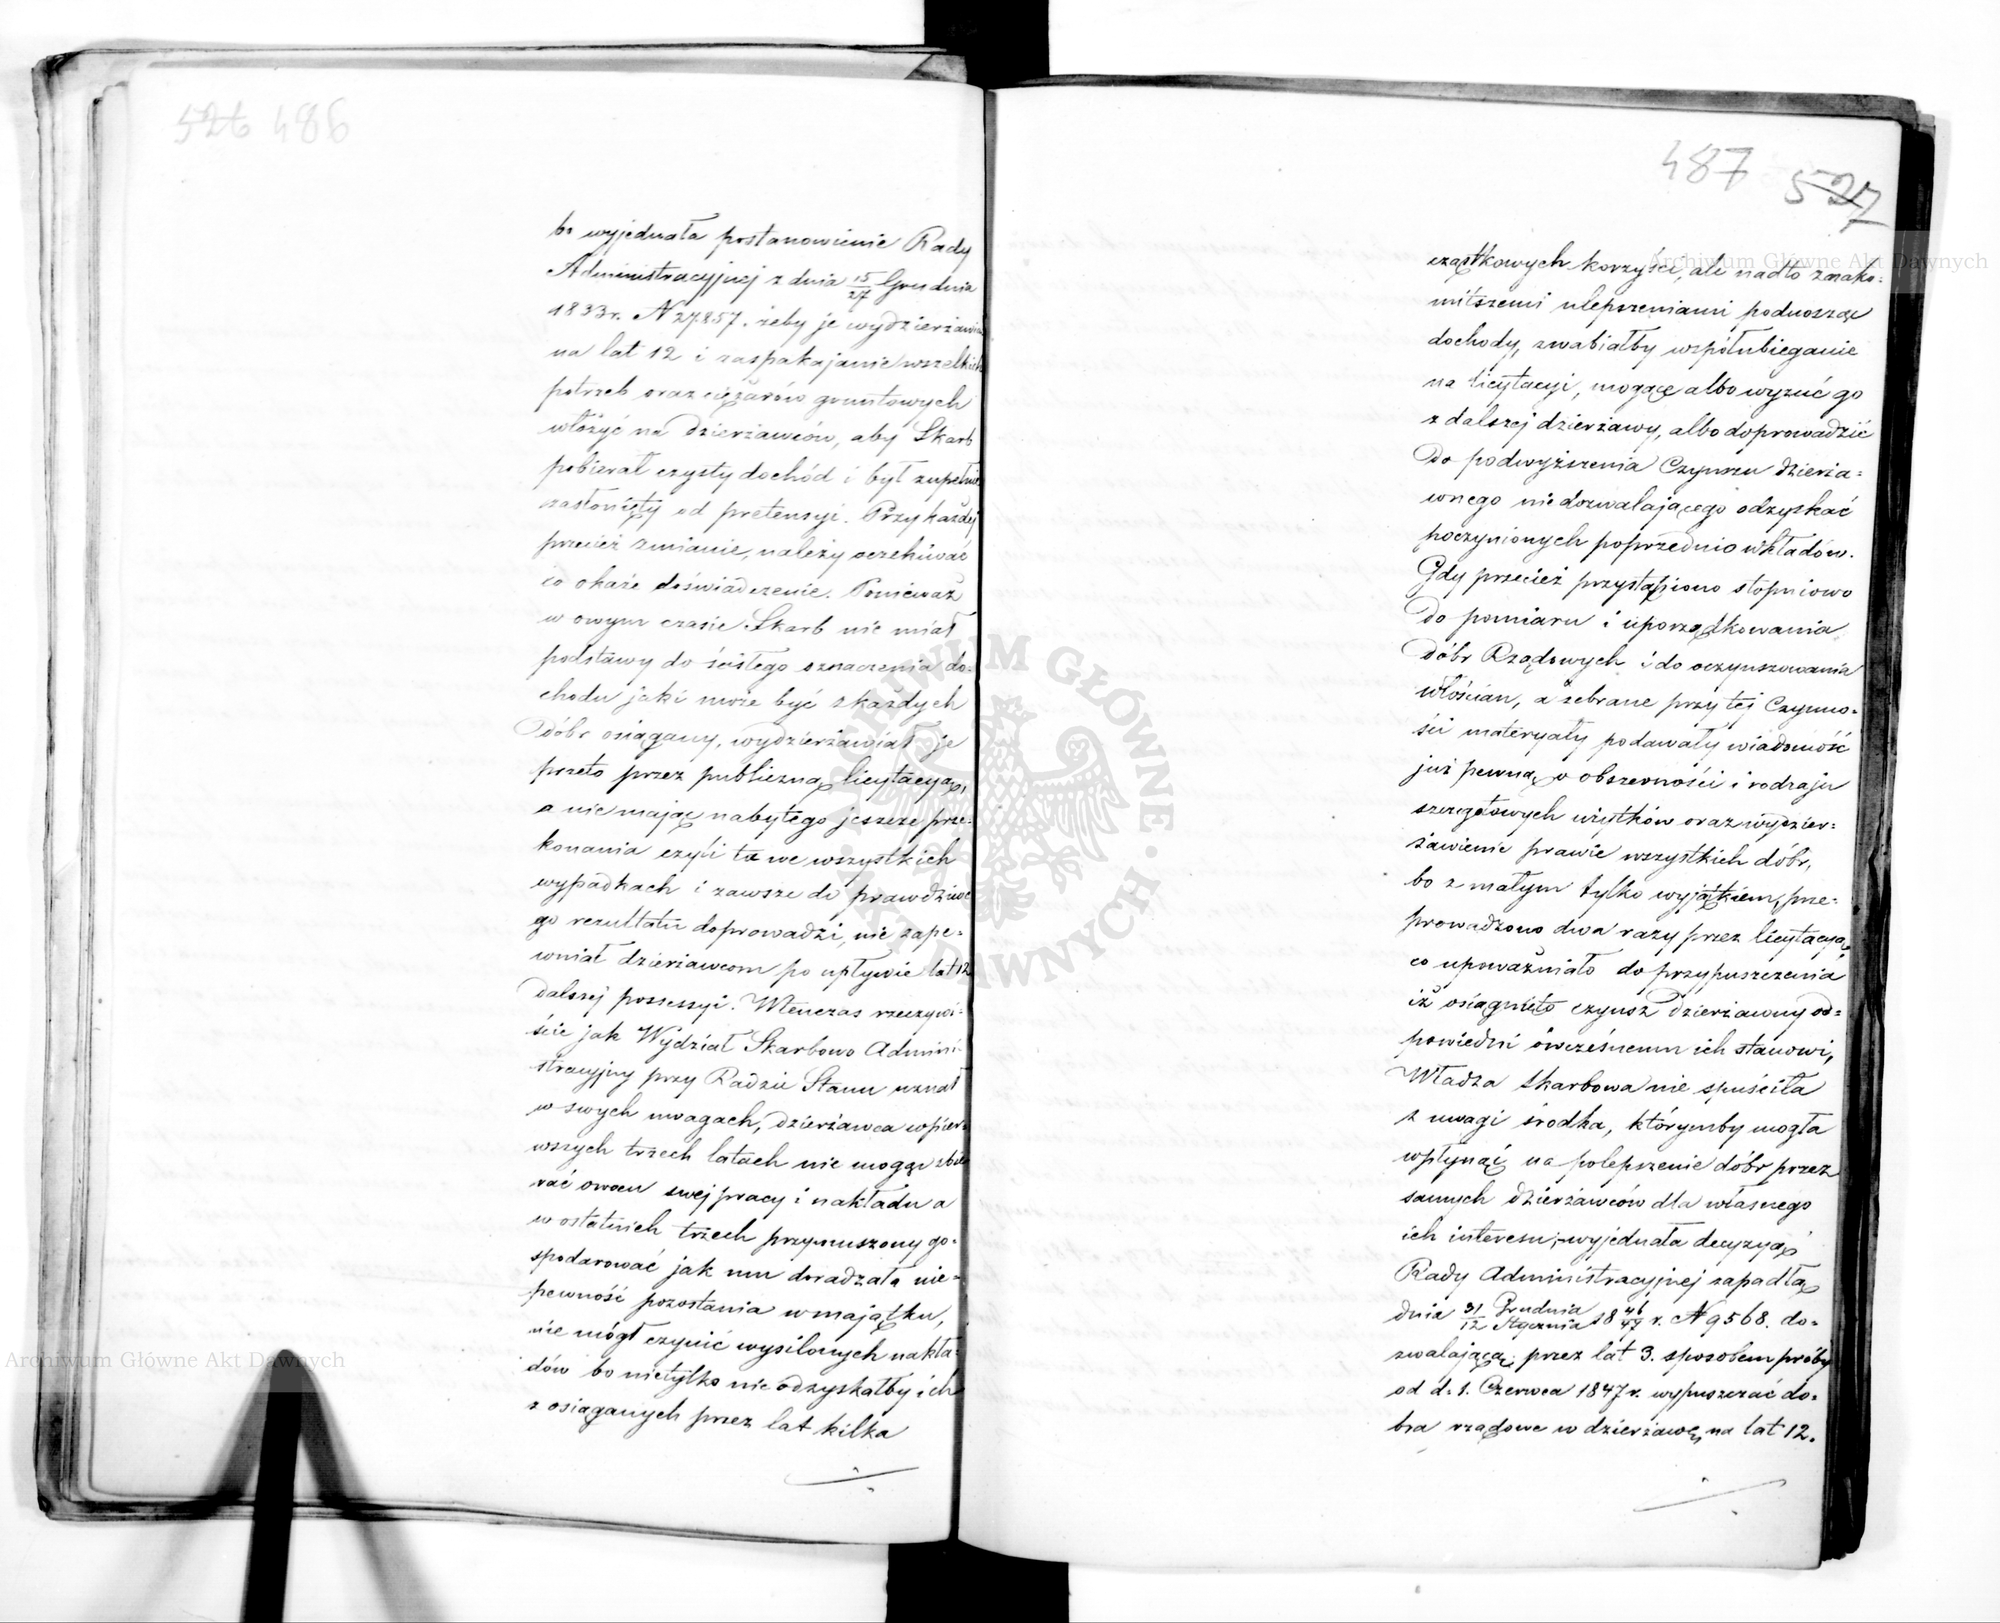 526 486
bo wyjednała postanowienie Rady
Administracyjnej z dnia 15/27 Grudnia
1833 r. N 27857. żeby je wydzierżawiać
na lat 12 i zaspakajanie wszelkich
potrzeb oraz ciężarów gruntowych
włożyć na Dzierżawców, aby Skarb
pobierał czysty dochód i był zupełnie
zasłonięty od pretensyi. Przy każdej
przecież zmianie, należy oczekiwać
co okaże doświadczenie. Ponieważ
w owym czasie Skarb nie miał
podstawy do ścisłego oznaczenia do-
chodu jaki może być z każdych
Dóbr osiągany, wydzierżawiał je
przeto przez publiczną licytacyą,
a nie mając nabytego jeszcze prze-
konania czyli ta we wszystkich
wypadkach i zawsze do prawdziwe
go rezultatu doprowadzi, nie zape-
wniał dzierżawcom po upływie lat 12
dalszej possessyi. Wtenczas rzeczywi-
ście jak Wydział Skarbowo Admini-
stracyjny przy Radzie Stanu uznał
w swych uwagach, dzierżawca w pier-
wszych trzech latach nie mogąc zbie
rać owocu swej pracy i nakładu a
w ostatnich trzech przymuszony go-
spodarować jak mu doradzała nie-
pewność pozostania w majątku,
nie mógł czynić wysilonych nakła-
dów bo nietylko nie odzyskałby ich
z osiąganych przez lat kilka
487 527
cząstkowych korzyści, ale nadto znako-
mitszemi ulepszeniami podnosząc
dochody, zwabiałby współubieganie
na licytacyi, mogące albo wyzuć go
z dalszej dzierżawy, albo doprowadzić
do podwyższenia Czynszu dzierża-
wnego niedozwalającego odzyskać
poczynionych poprzednio wkładów.
Gdy przecież przystąpiono stopniowo
do pomiaru i uporządkowania
Dóbr Rządowych i do oczynszowania
włościan, a zebrane przy tej Czynno-
ści materyały podawały wiadomość
już pewną o obszerności i rodzaju
szczegółowych użytków oraz wydzier-
żawienie prawie wszystkich dóbr,
bo z małym tylko wyjątkiem, prze-
prowadzono dwa razy przez licytacyą,
co upoważniało do przypuszczenia
iż osiągnięto czynsz Dzierżawny od-
powiedni ówczesnemu ich stanowi,
Władza skarbowa nie spuściła
z uwagi środka, którymby mogła
wpłynąć na polepszenie dóbr przez
samych dzierżawców dla własnego
ich interesu; wyjednała decyzyą
Rady Administracyjnej zapadłą
dnia 31 Grudnia/12 Stycznia 18 46/47 r. N 9568. do-
zwalającą przez lat 3. sposobem próby
od d. 1. Czerwca 1847 r. wypuszczać do-
bra rządowe w dzierżawę na lat 12.
Archiwum Główne Akt Dawnych
Archiwum Główne Akt Dawnych
ARCHIWUM GŁÓWNE · AKT DAWNYCH ·